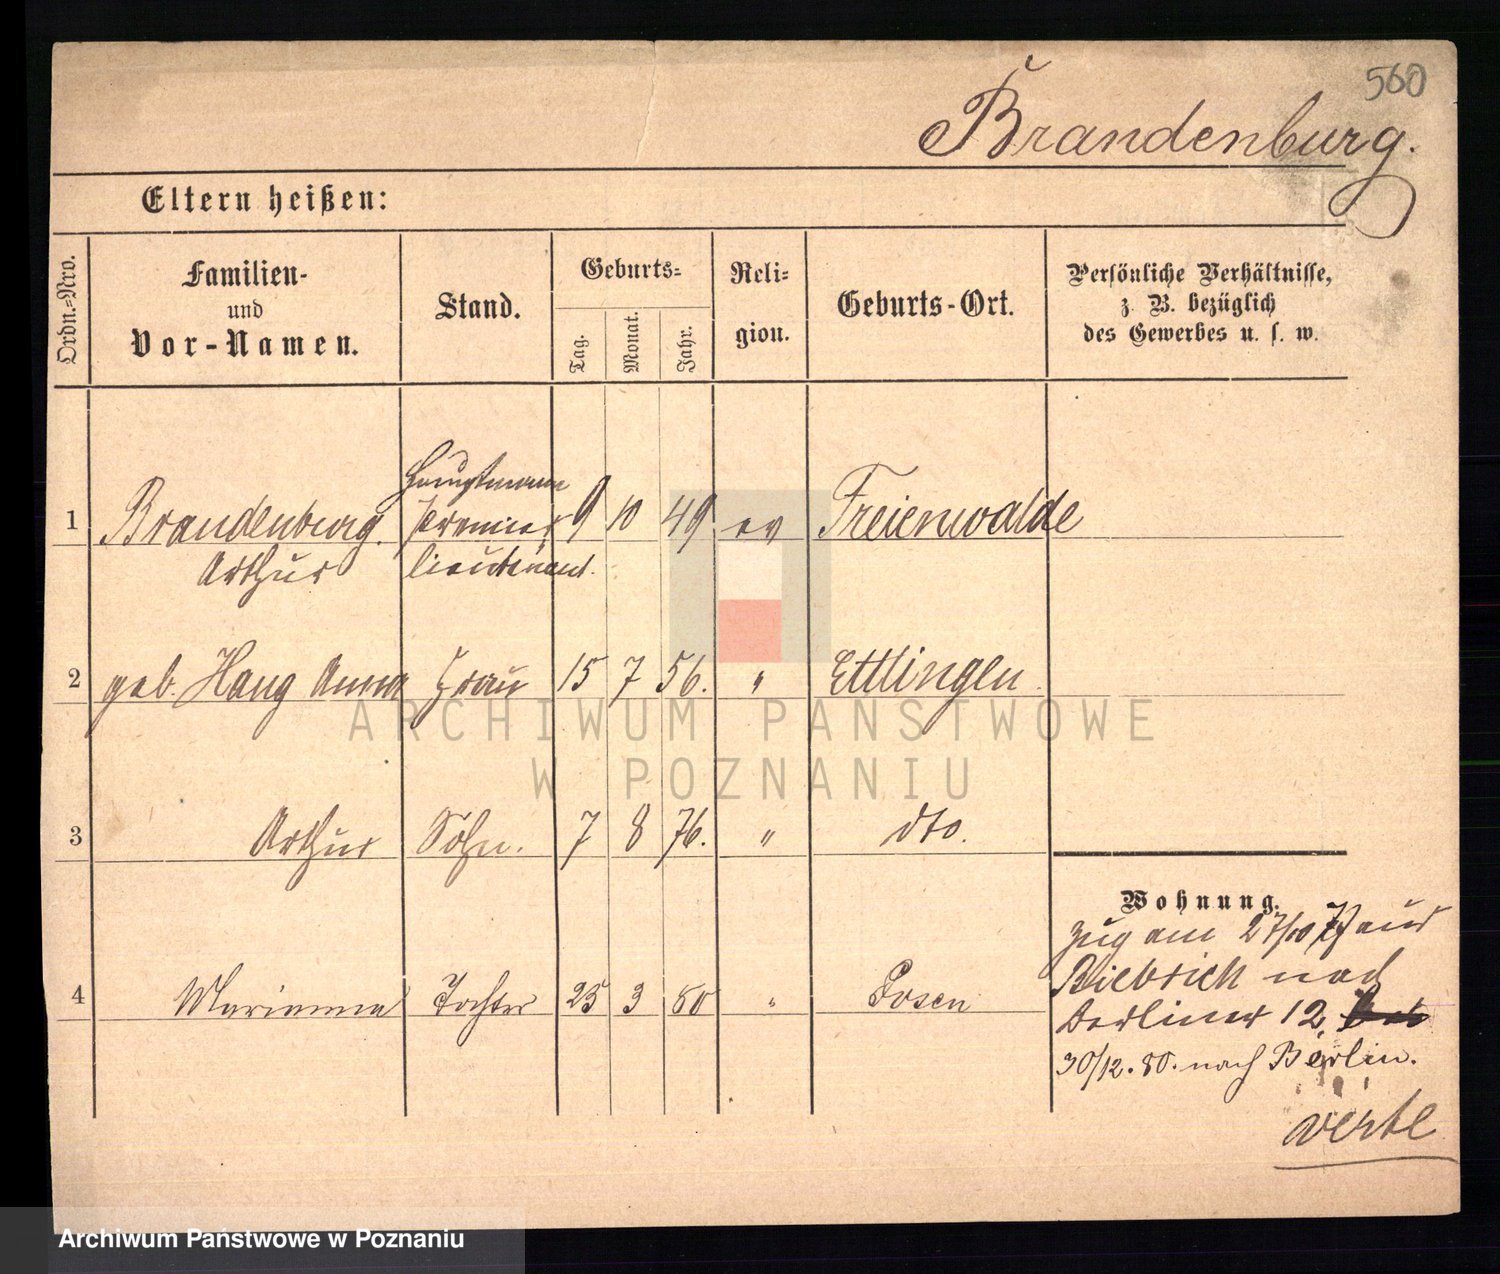 560
Brandenburg.
Eltern heißen:
Ordn.-Nro.
Familien-
und
Vor-Namen.
Stand.
Geburts-
Tag.
Monat.
Jahr.
Reli-
gion.
Geburts-Ort.
Persönliche Verhältnisse,
z. B. bezüglich
des Gewerbes u. s. w.
Hauptmann
1 Brandenburg. Premier 9 10 49 ev Freienwalde
Arthur lieutenant.
2 geb. Haug Anna Frau 15 7 56. " Ettlingen
ARCHIWUM PAŃSTWOWE
W POZNANIU
3 Arthur Sohn. 7 8 76. " dto.
4 Marianna Tochter 25 3 80 " Posen
Wohnung.
zug am 27/10 79 aus
Biebrich nach
Berliner 12.
30/12. 80. nach Berlin.
verte
Archiwum Państwowe w Poznaniu